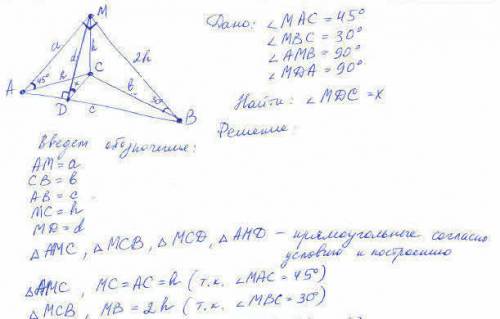 M
a
d
h
2h
45°
h
C
b
30°
A
D
x
c
B
Дано: ∠MAC = 45°
∠MBC = 30°
∠AMB = 90°
∠MDA = 90°
Найти: ∠MDC = x
Решение:
Введем обозначение:
AM = a
CB = b
AB = c
MC = h
MD = d
△AMC, △MCB, △MCD, △AMD – прямоугольные согласно
условию и построению
△AMC, MC = AC = h (т.к. ∠MAC = 45°)
△MCB, MB = 2h (т.к. ∠MBC = 30°)